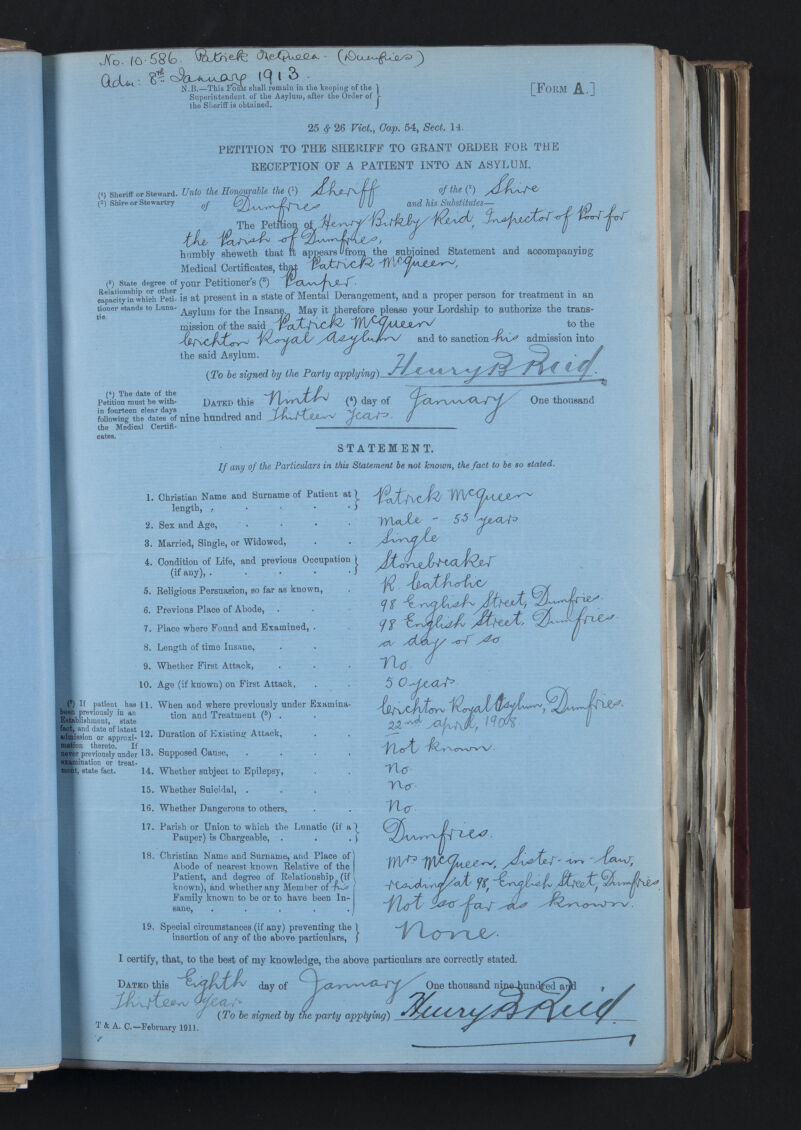 No. 10.586. Patrick McQueen - (Dumfries)
Adm: 8th January 1913.
N.B.—This Form shall remain in the keeping of the
Superintendent of the Asylum, after the Order of
the Sheriff is obtained.
[Form A.]
25 & 26 Vict., Cap. 54, Sect. 14.
PETITION TO THE SHERIFF TO GRANT ORDER FOR THE
RECEPTION OF A PATIENT INTO AN ASYLUM.
(1) Sheriff or Steward.
(2) Shire or Stewartry
Unto the Honourable the (1) Sheriff of the (2) Shire
of Dumfries and his Substitutes—
The Petition of Henry Birkby Reid, Inspector of Poor for
the Parish of Dumfries,
humbly sheweth that it appears from the subjoined Statement and accompanying
Medical Certificates, that Patrick McQueen,
(3) State degree of
Relationship or other
capacity in which Peti-
tioner stands to Luna-
tic.
your Petitioner's (3) Pauper
is at present in a state of Mental Derangement, and a proper person for treatment in an
Asylum for the Insane. May it therefore please your Lordship to authorize the trans-
mission of the said Patrick McQueen to the
Crichton Royal Asylum and to sanction his admission into
the said Asylum.
(To be signed by the Party applying) Henry B Reid.
(4) The date of the
Petition must be with-
in fourteen clear days
following the dates of
the Medical Certifi-
cates.
Dated this Ninth (4) day of January One thousand
nine hundred and Thirteen Years.
STATEMENT.
If any of the Particulars in this Statement be not known, the fact to be so stated.
1. Christian Name and Surname of Patient at
length, Patrick McQueen
2. Sex and Age, Male - 55 years
3. Married, Single, or Widowed, Single
4. Condition of Life, and previous Occupation
(if any), Stonebreaker
5. Religious Persuasion, so far as known, R. Catholic
6. Previous Place of Abode, 98 English Street, Dumfries.
7. Place where Found and Examined, 98 English Street, Dumfries
8. Length of time Insane, a day or so
9. Whether First Attack, No
10. Age (if known) on First Attack, 50 years.
(5) If patient has
been previously in an
Establishment, state
fact, and date of latest
admission or approxi-
mation thereto. If
never previously under
examination or treat-
ment, state fact.
11. When and where previously under Examina-
tion and Treatment (5) Crichton Royal Asylum, Dumfries.
22nd April, 1908.
12. Duration of Existing Attack,
13. Supposed Cause, Not known.
14. Whether subject to Epilepsy, No.
15. Whether Suicidal, No.
16. Whether Dangerous to others, No.
17. Parish or Union to which the Lunatic (if a
Pauper) is Chargeable, Dumfries.
18. Christian Name and Surname, and Place of
Abode of nearest known Relative of the
Patient, and degree of Relationship (if
known), and whether any Member of his
Family known to be or to have been In-
sane,
Mrs McQueen, Sister-in-law,
residing at 98, English Street, Dumfries.
Not so far as known.
19. Special circumstances (if any) preventing the
insertion of any of the above particulars, None.
I certify, that, to the best of my knowledge, the above particulars are correctly stated.
Dated this Eighth day of January One thousand nine hundred and
Thirteen Years
(To be signed by the party applying) Henry B Reid.
T & A. C.—February 1911.